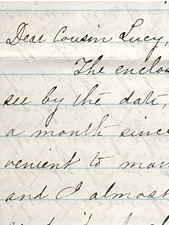 Dear Cousin Lucy,
The enclos
see by the date,
a month since
venient to mai
and I almost